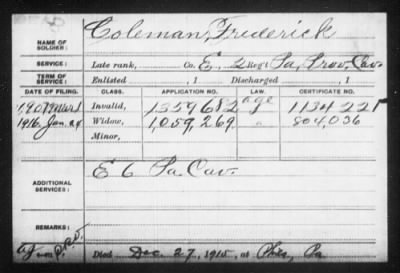 NAME OF SOLDIER: Coleman, Frederick
SERVICE: Late rank, Co. E. 2 Reg't Pa. Prov. Cav.
TERM OF SERVICE: Enlisted , 1 Discharged , 1
DATE OF FILING. CLASS. APPLICATION NO. LAW. CERTIFICATE NO.
Invalid, 1359682 age 1134225
1916 Jan. 24 Widow, 1,059,269 " 804,036
Minor,
ADDITIONAL SERVICES: E 6 Pa. Cav.
REMARKS:
Died Dec. 27, 1915, at Pa